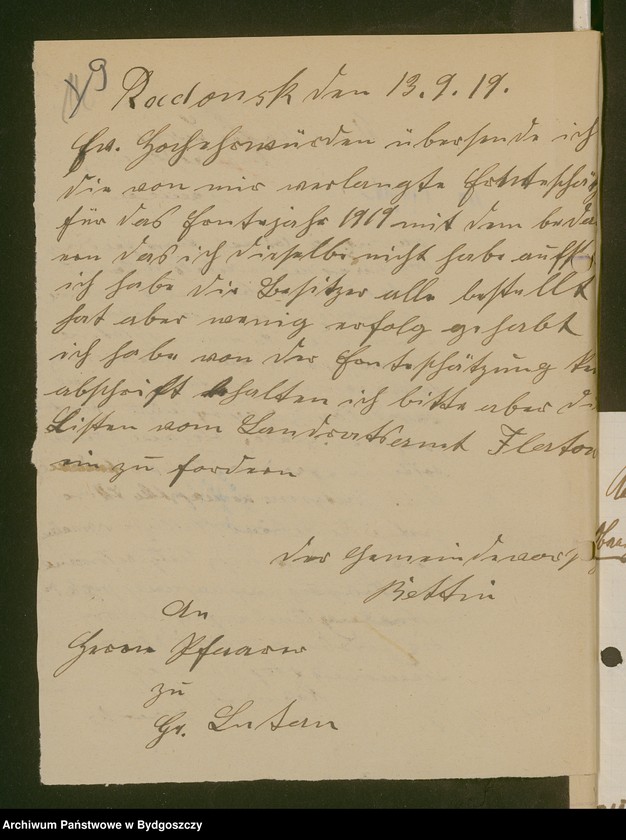 9
Radonsk den 13.9.19.
Ew. Hochehrwürden übersende ich
die von mir verlangte Ernteschät
für das Erntejahr 1919 mit dem beda
ern das ich dieselbe nicht habe aufst
ich habe die Besitzer alle bestellt
hat aber wenig erfolg gehabt
ich habe von der Ernteschätzung ke
abschrift behalten ich bitte aber di
Listen vom Landratsamt Flatow
ein zu fordern
Der Gemeindevorst
Bettin
An
Herrn Pfaarer
zu
Gr. Lutau
Archiwum Państwowe w Bydgoszczy